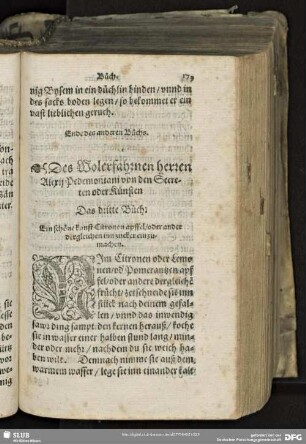 Büch. 179
nig Bysem in ein düchlin binden / vnnd in
des sacks boden legen / so bekommet er ein
vast lieblichen geruch.
Ende des anderen Büchs.
Des Wolerfahrnen herren
Alexij Pedemontani von den Secre-
ten oder Künsten
Das dritte Büch:
Ein schöne kunst Citronen äpffel / oder ander
dergleichen inn zucker einzu-
machen.
NIm Citronen oder Lemo-
nen / od Pomerantzen äpf
fel / oder andere dergleiche
frücht / zerschneide sie inn
stück nach deinem gefal-
len / vnnd das inwendig
sawr ding sampt den kernen herauß / koche
sie in wasser einer halben stund lang / min-
der oder meh / nachdem du sie weich ha-
ben wilt. Demnach nimme sie auß dem
warmem wasser / lege sie inn einander kalt
SLUB
Wir führen Wissen.
gefördert von der
Deutschen Forschungsgemeinschaft
DFG